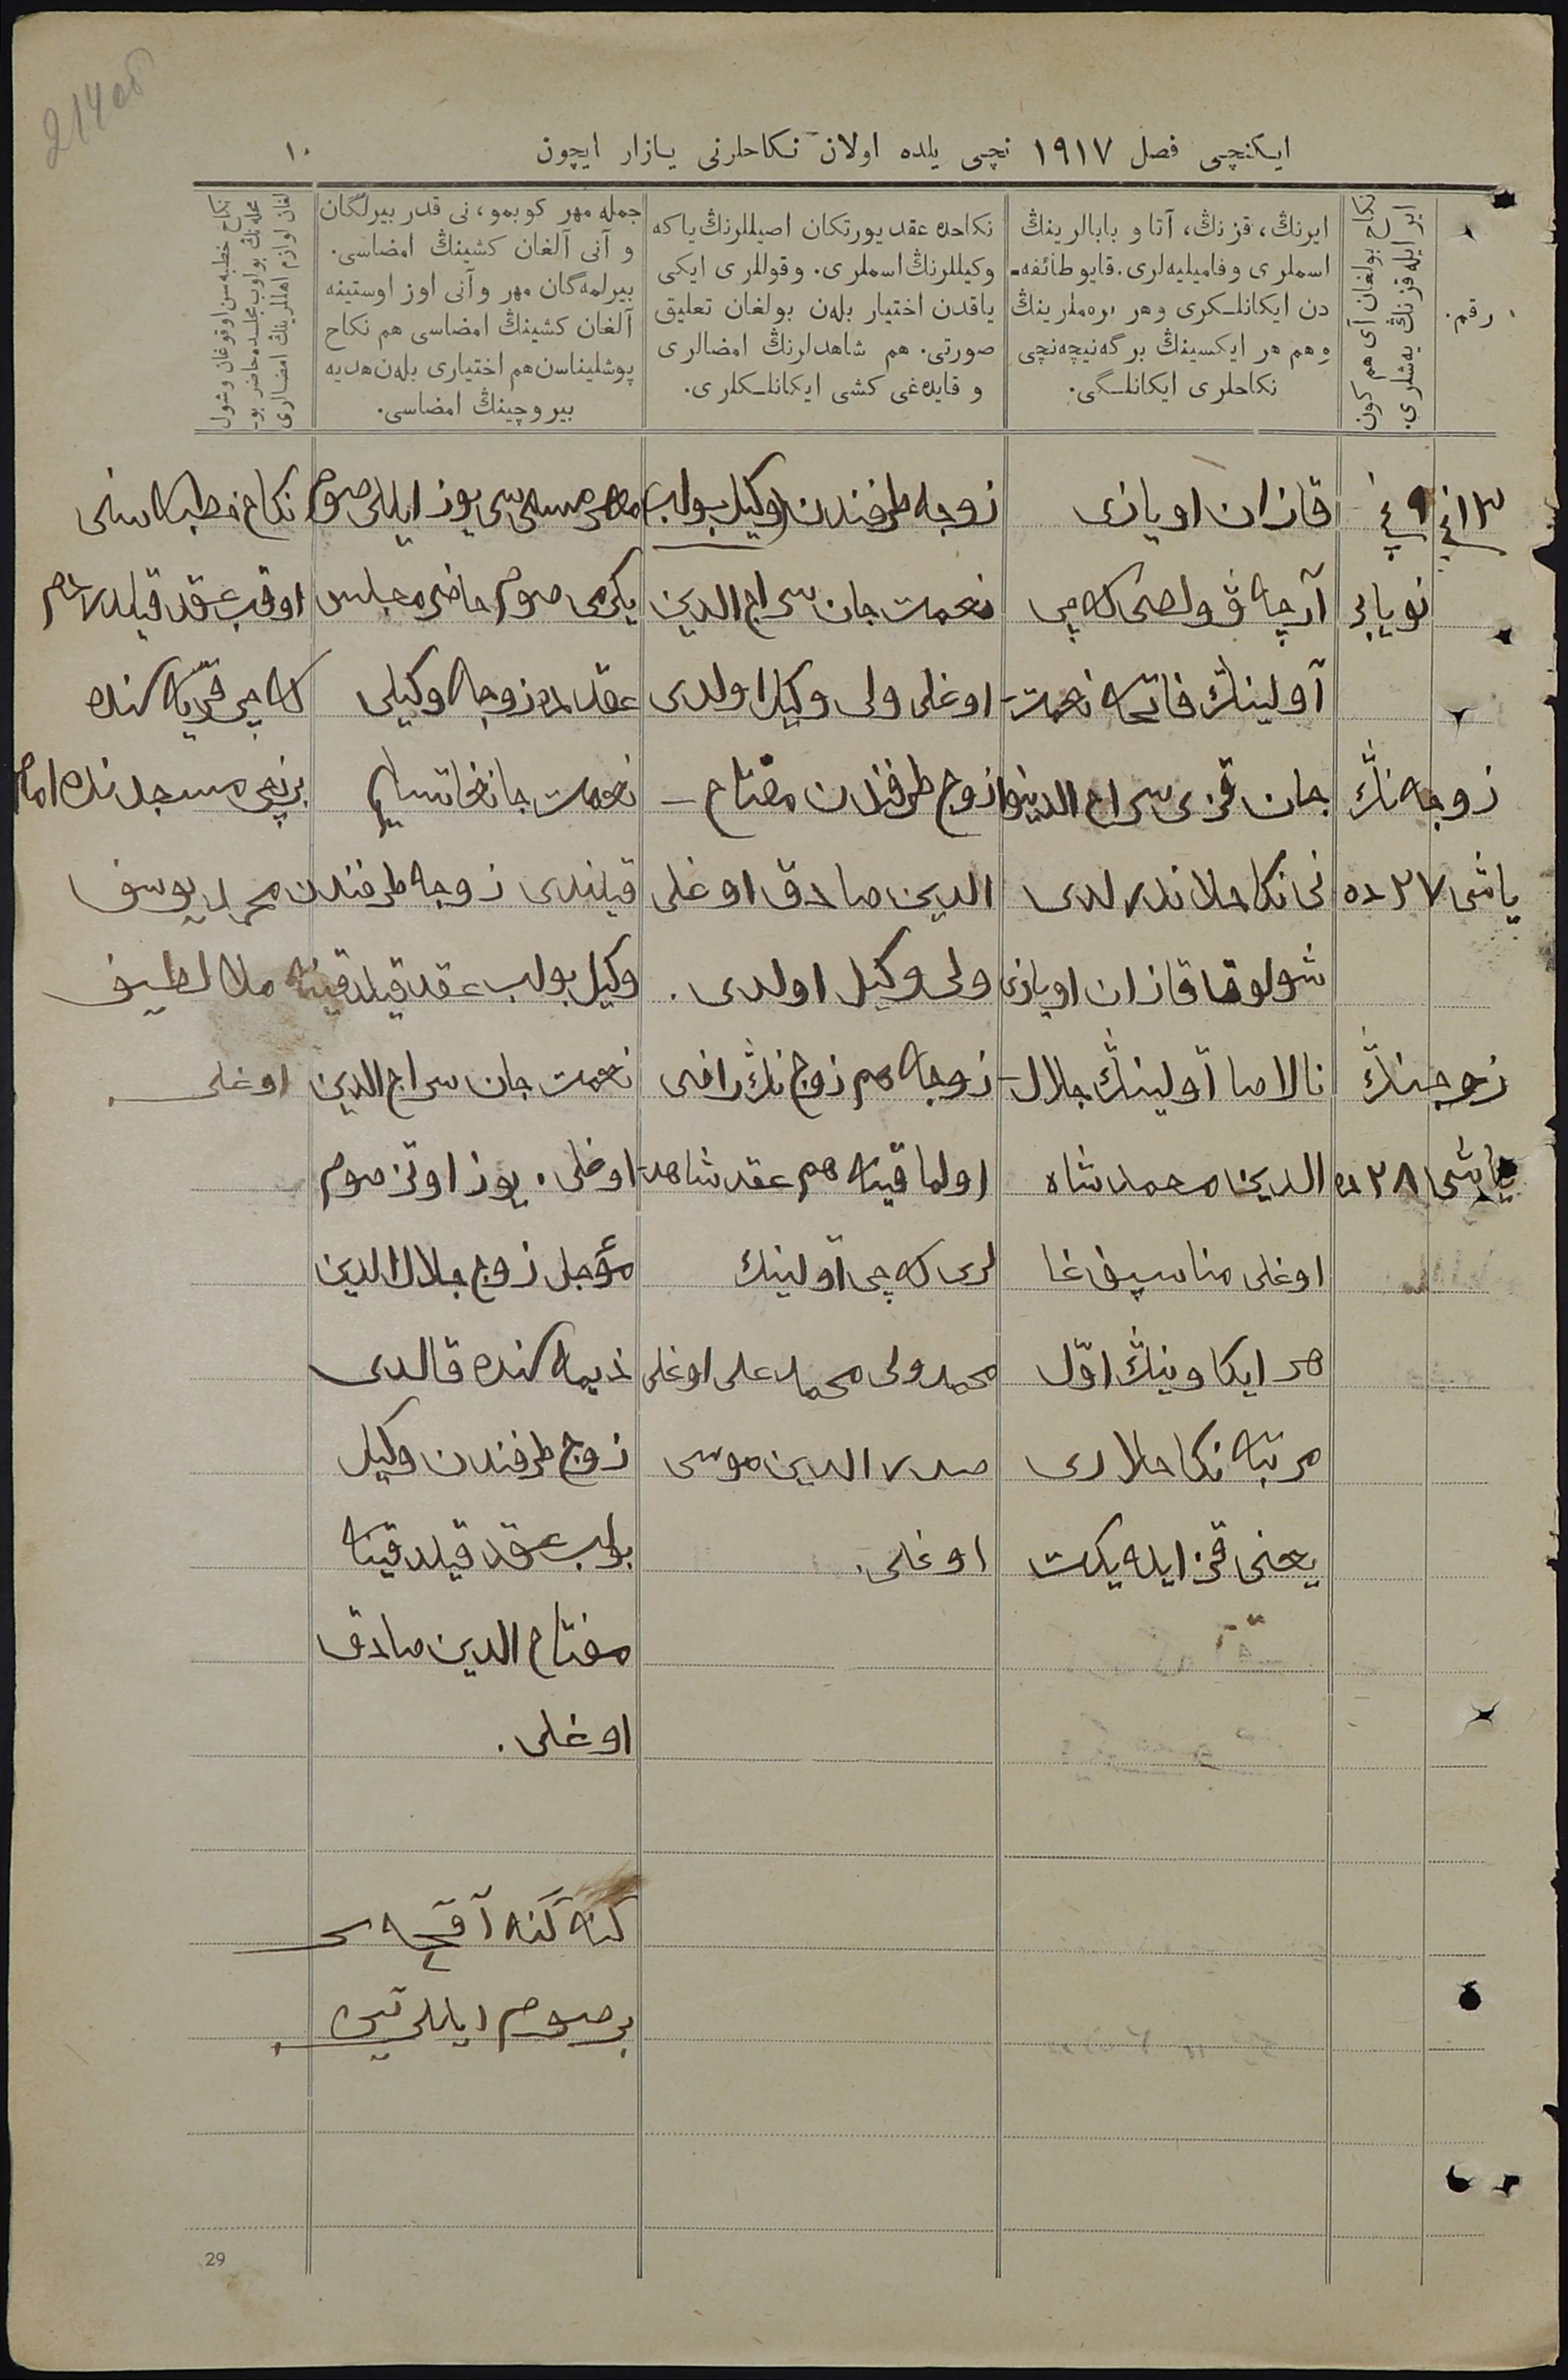 214 об
ایكنچی فصل ١٩١٧ نچی یلده اولان نكاحلرنی یازار ایچون
١٠
رقم.
نكاح بولغان آی هم كون
ایر ایله قزنڭ یه‌شلری.
ایرنڭ، قزنڭ، آتا و بابالرینڭ
اسملری و فامیلیه‌لری. قایو طائفه‌ـ
دن ایكانلـكری و هر بره‌ملرینڭ
وهم هر ایكسینڭ برگه نیچه‌نچی
نكاحلری ایكانلـگی.
نكاحده عقد یورتكان اصیللرنڭ یا كه
وكیللرنڭ اسملری. و قوللری ایكی
یاقدن اختیار بله‌ن بولغان تعلیق
صورتی. هم شاهدلرنڭ امضالری
و قایده‌غی كشی ایكانلـكلری.
جمله مهر كوبمو، نی قدر بیرلگان
و آنی آلغان كشینڭ امضاسی.
بیرلمه‌گان مهر و آنی اوز اوستینه
آلغان كشینڭ امضاسی هم نكاح
پوشلیناسن هم اختیاری بله‌ن هدیه
بیروچینڭ امضاسی.
نكاح خطبه‌سن اوقوغان و شول
محله‌نڭ بولوب مجلسده حاضر بو-
لغان لوازم اهللرینڭ امضالری
١٣ نچی
٩ نچی
نویابر
زوجه‌نڭ
یاشی ٢٧ ده
زوجنڭ
یاشی ٢٨ ده
قازان اویازی
آرچه ڤولصی كه‌چی
آولینڭ فاتحه نعمت-
جان قزی سراج الدینوا
نی نكاحلاندرلدی
شولوقا قازان اویازی
نالاصا آولینڭ جلال-
الدین محمدشاه
اوغلی مناسیپف غا
هر ایكاوینڭ اوّل
مرتبه نكاحلاری
یعنی قز ایله یكت
زوجه طرفندن (وكیل بولب)
نعمت جان سراج الدین
اوغلی ولی وكیل اولدی
زوج طرفندن مفتاح-
الدین صادق اوغلی
ولی وكیل اولدی.
زوجه هم زوج نڭ راضی
اولماقینه هم عقد شاهد-
لری كه‌چی آولینڭ
محمدولی محمدعلی اوغلی
صدر الدین موسی
اوغلی.
مهر مسمی سی یوز ایللی صوم
یكرمی صوم حاضر مجلس
عقدده زوجه وكیلی
نعمت جانغا تسلیم
قیلندی زوجه طرفندن
وكیل بولب عقد قیلدقینه
نعمت جان سراج الدین
اوغلی. یوز اوتز صوم
مؤجل زوج جلال الدین
ذیمه‌كنده قالدی
زوج طرفندن وكیل
بولب عقد قیلدقینه
مفتاح الدین صادق
اوغلی.
كنه‌گنه آقچه سی
بر صوم ایللی تین.
نكاح خطبه‌سنی
اوقب عقد قیلدرغام
كه‌چی قریه‌كنده
برنچی مسجدنده امام
محمد یوسف
ملا لطیف
اوغلی.
29